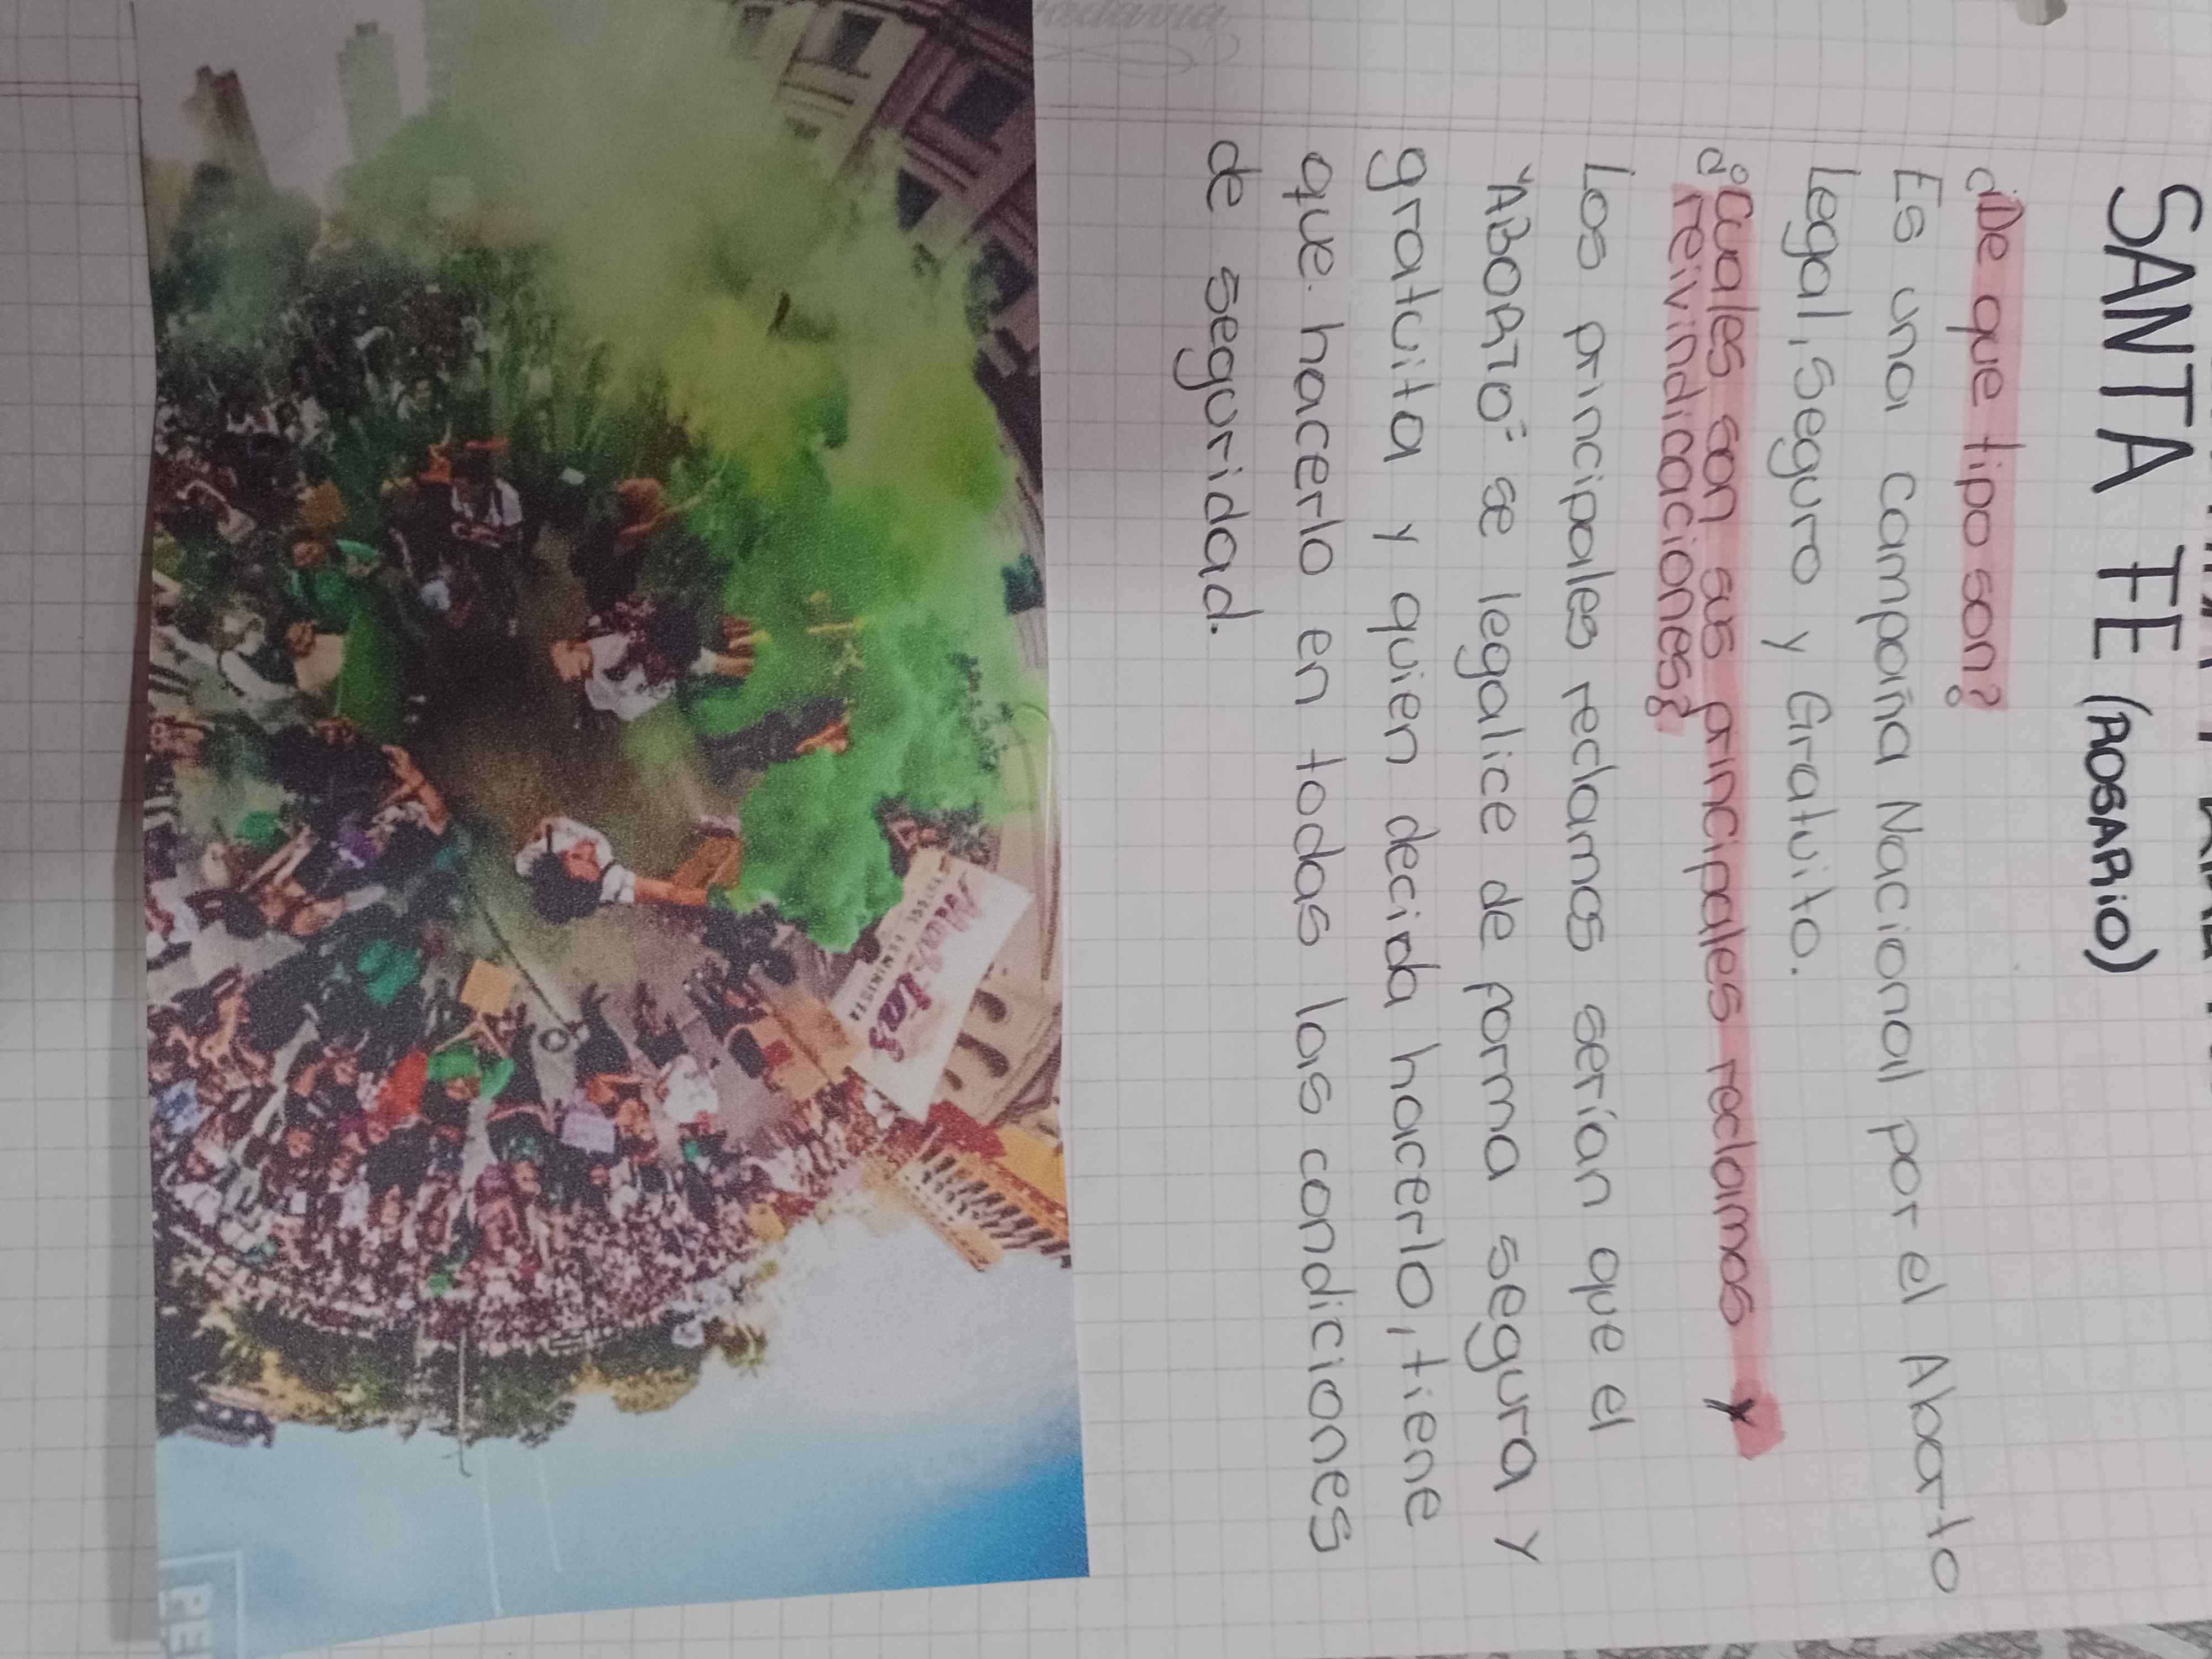 SANTA FE (ROSARIO)
¿De que tipo son?
Es una Campaña Nacional por el Aborto
legal, seguro y Gratuito.
¿Cuales son sus principales reclamos y
reivindicaciones?
Los principales reclamos serían que el
"ABORTO" se legalice de forma segura y
gratuita y quien decida hacerlo, tiene
que hacerlo en todas las condiciones
de seguridad.
FEMINISTA
PE